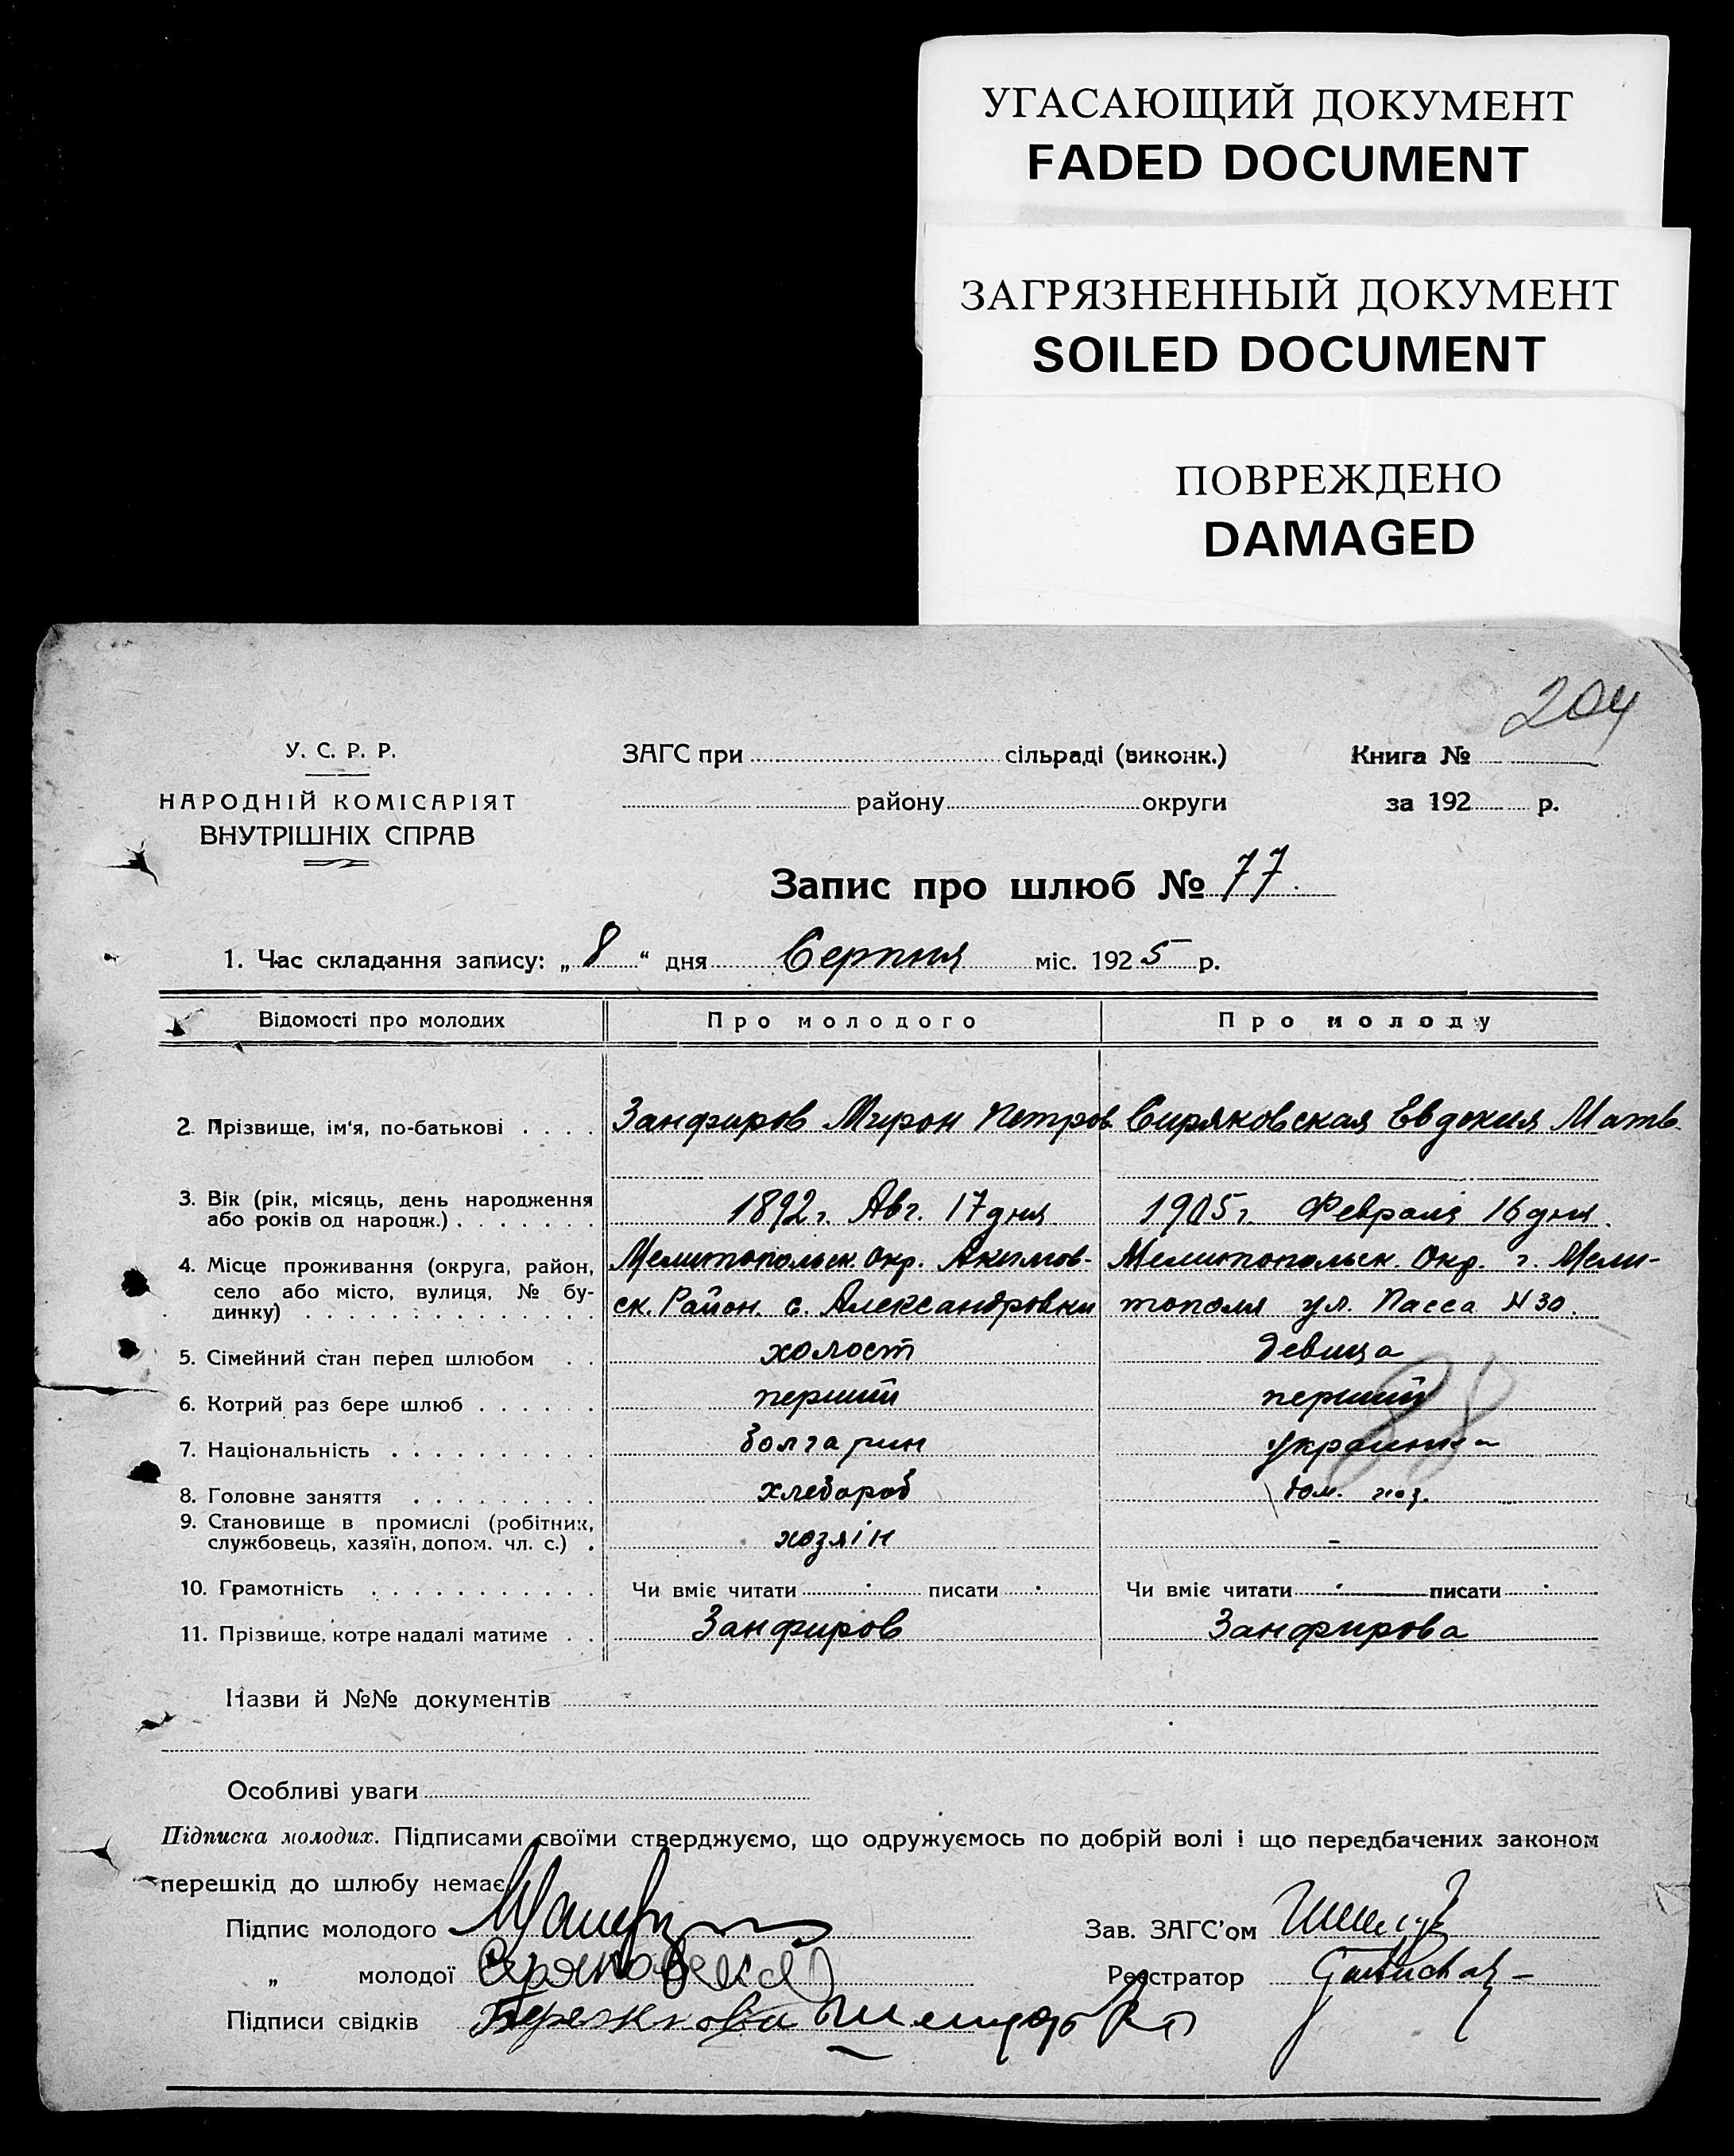 УГАСАЮЩИЙ ДОКУМЕНТ
FADED DOCUMENT
ЗАГРЯЗНЕННЫЙ ДОКУМЕНТ
SOILED DOCUMENT
ПОВРЕЖДЕНО
DAMAGED
204
У. С. Р. Р.
НАРОДНІЙ КОМІСАРІЯТ
ВНУТРІШНІХ СПРАВ
ЗАГС при сільраді (виконк.)
району округи
Книга №
за 192 р.
Запис про шлюб № 77.
1. Час складання запису: „8“ дня Серпня міс. 1925 р.
Відомості про молодих Про молодого Про молоду
2. Прізвище, ім'я, по-батькові . . . . Занфиров Мирон Петров. Сиряковская Евдокия Матв.
3. Вік (рік, місяць, день народження
або років од народж.) . . . . . . . 1892 г. Авг. 17 дня 1905 г. Февраля 16 дня.
4. Місце проживання (округа, район, Мелитопольск. Окр. Акимов- Мелитопольск. Окр. г. Мели-
село або місто, вулиця, № бу- ск. Район. с. Александровки тополя ул. Пасса № 30.
динку) . . . . . . . . . . . . . .
5. Сімейний стан перед шлюбом . . холост девица
6. Котрий раз бере шлюб . . . . . . перший перший
88
7. Національність . . . . . . . . . болгарин украинка
8. Головне заняття . . . . . . . . . хлебороб дом. хоз.
9. Становище в промислі (робітник,
службовець, хазяїн, допом. чл. с.) . хозяін -
10. Грамотність . . . . . . . . . . . Чи вміє читати писати Чи вміє читати писати
11. Прізвище, котре надалі матиме . . Занфиров Занфирова
Назви й №№ документів
Особливі уваги
Підписка молодих. Підписами своїми стверджуємо, що одружуємось по добрій волі і що передбачених законом
перешкід до шлюбу немає.
Підпис молодого Зав. ЗАГС'ом
„ молодої Реєстратор
Підписи свідків